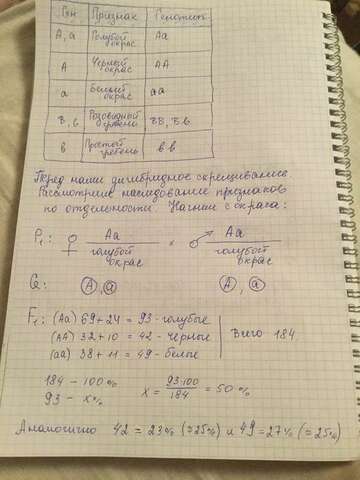 Ген Признак Генотип
А, а Голубой окрас Аа
А Черный окрас АА
а Белый окрас аа
В, в Розовидный гребень ВВ, Вв
в Простой гребень вв
Перед нами дигибридное скрещивание.
Рассмотрим наследование признаков
по отдельности. Начнём с окраса:
P₁: ♀ Аа голубой окрас × ♂ Аа голубой окрас
G: А, а А, а
F₁: (Аа) 69+24 = 93 - голубые
(АА) 32+10 = 42 - чёрные Всего 184
(аа) 38+11 = 49 - белые
184 - 100%
93 - x%
x = 93·100/184 = 50 %
Аналогично 42 = 23% (≈25%) и 49 = 27% (≈25%)